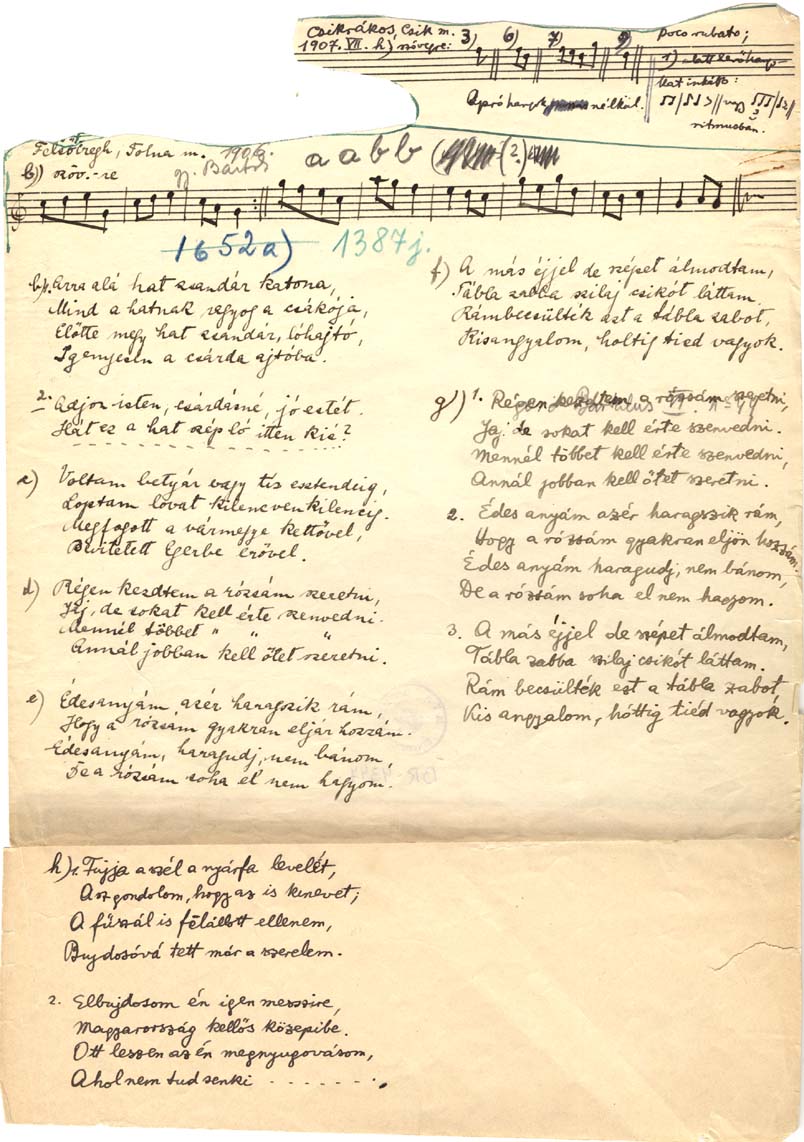 Csikrákos, Csik m. 3) 6) 7) 9) poco rubato;
1907. VII. h) szövegre:
Apró hangok nélkül.
ritmusban.
Felsőiregh, Tolna m. 1906. a a b b (2.)
b) szöv.-re gy. Bartók
1652a) 1387j.
b) 1. Arra alá hat zsandár katona,
Mind a hatnak ragyog a csákója,
Előtte megy hat zsandár, lóhajtó,
Igenyesen a csárda ajtóba.
2. Adjon isten, csárdásné, jó estét.
Hát ez a hat szép ló itten kié?
c) Voltam betyár vagy tiz esztendeig,
Loptam lovat kilencvenkilencig.
Megfogott a vármegye kettővel,
Bevitetett Egerbe erővel.
d) Régen kezdtem a rózsám szeretni,
Jáj, de sokat kell érte szenvedni.
Mennél többet " " "
Annál jobban kell őtet szeretni.
e) Édesanyám azér haragszik rám,
Hogy a rózsám gyakran eljár hozzám.
Édesanyám, haragudj, nem bánom,
De a rózsám soha el nem hagyom.
f) A más éjjel de szépet álmodtam,
Tábla zabba szilaj csikót láttam.
Rámbecsülték ezt a tábla zabot,
Kisangyalom, holtig tied vagyok.
g) 1. Régen kezdtem a rózsám szeretni,
Jaj de sokat kell érte szenvedni.
Mennél többet kell érte szenvedni,
Annál jobban kell őtet szeretni.
2. Édes anyám azér haragszik rám,
Hogy a rózsám gyakran eljön hozzám.
Édes anyám haragudj, nem bánom,
De a rózsám soha el nem hagyom.
3. A más éjjel de szépet álmodtam,
Tábla zabba szilaj csikót láttam.
Rám becsülték ezt a tábla zabot,
Kis angyalom, hóttig tiéd vagyok.
h) 1. Fújja a szél a nyárfa levelét,
Azt gondolom, hogy az is kinevet;
A fűszál is fëlállott ellenem,
Bujdosóvá tett már a szerelem.
2. Elbujdosom én igen messzire,
Magyarország kellős közepibe.
Ott leszen az én megnyugovásom,
A hol nem tud senki - - - - - - - .